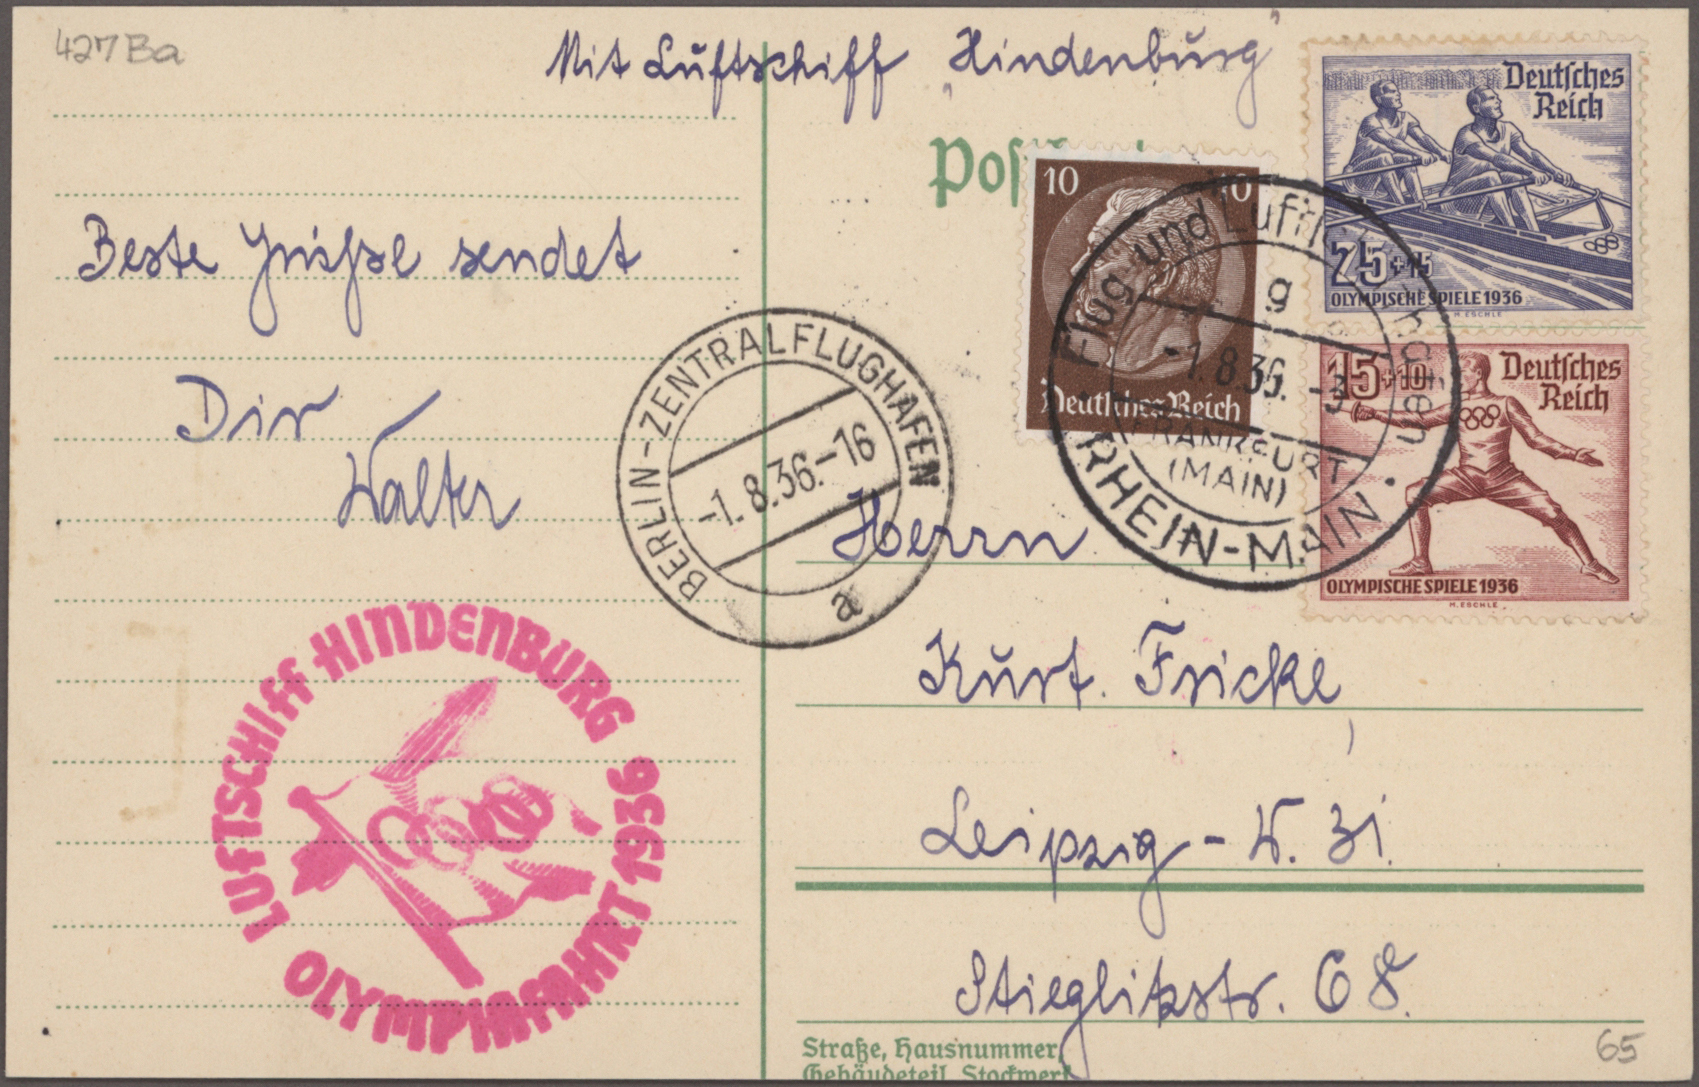 427 Ba
Mit Luftschiff „Hindenburg"
Postkarte
Beste Grüße sendet
Dir
Walter
10 10
Deutsches Reich
Deutsches
Reich
25+15
OLYMPISCHE SPIELE 1936
M. ESCHLE
15+10
Deutsches
Reich
OLYMPISCHE SPIELE 1936
M. ESCHLE
Flug- und Lufthafen
g
-1.8.36.-3
FRANKFURT
(MAIN)
RHEIN-MAIN
BERLIN-ZENTRALFLUGHAFEN
-1.8.36.-16
a
LUFTSCHIFF HINDENBURG
OLYMPIAFAHRT 1936
Herrn
Kurt Fricke,
Leipzig - W. 31.
Stieglitzstr. 68.
Straße, Hausnummer,
Gebäudeteil, Stockwerk
65